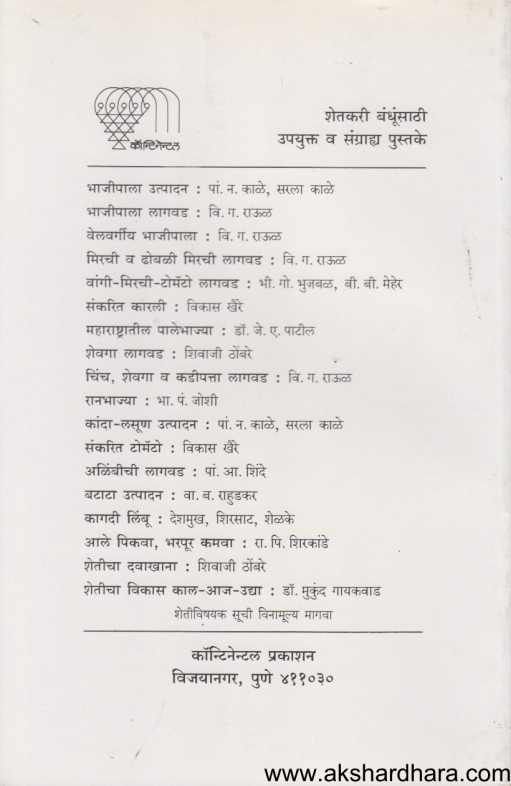 कॉन्टिनेन्टल
शेतकरी बंधूंसाठी
उपयुक्त व संग्राह्य पुस्तके
भाजीपाला उत्पादन : पां. न. काळे, सरला काळे
भाजीपाला लागवड : वि. ग. राऊळ
वेलवर्गीय भाजीपाला : वि. ग. राऊळ
मिरची व ढोबळी मिरची लागवड : वि. ग. राऊळ
वांगी-मिरची-टोमॅटो लागवड : भी. गो. भुजबळ, बी. बी. मेहेर
संकरित कारली : विकास खैरे
महाराष्ट्रातील पालेभाज्या : डॉ. जे. ए. पाटील
शेवगा लागवड : शिवाजी ठोंबरे
चिंच, शेवगा व कडीपत्ता लागवड : वि. ग. राऊळ
रानभाज्या : भा. पं. जोशी
कांदा-लसूण उत्पादन : पां. न. काळे, सरला काळे
संकरित टोमॅटो : विकास खैरे
अळिंबीची लागवड : पां. आ. शिंदे
बटाटा उत्पादन : वा. ब. राहुडकर
कागदी लिंबू : देशमुख, शिरसाट, शेळके
आले पिकवा, भरपूर कमवा : रा. पि. शिरकांडे
शेतीचा दवाखाना : शिवाजी ठोंबरे
शेतीचा विकास काल-आज-उद्या : डॉ. मुकुंद गायकवाड
शेतीविषयक सूची विनामूल्य मागवा
कॉन्टिनेन्टल प्रकाशन
विजयानगर, पुणे ४११०३०
www.akshardhara.com